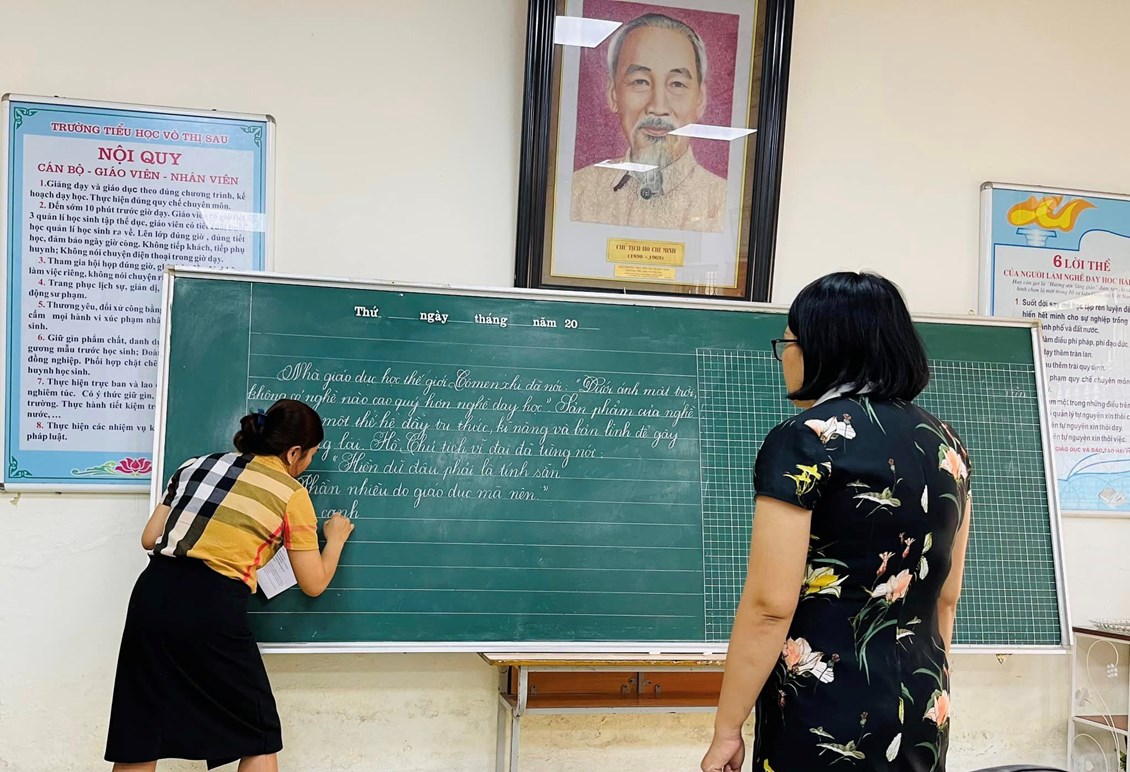 TRƯỜNG TIỂU HỌC VÕ THỊ SÁU
NỘI QUY
CÁN BỘ - GIÁO VIÊN - NHÂN VIÊN
1.Giảng dạy và giáo dục theo đúng chương trình, kế
hoạch dạy học. Thực hiện đúng quy chế chuyên môn.
2. Đến sớm 10 phút trước giờ dạy. Giáo viên có giờ tiết
3 quản lí học sinh tập thể dục, giáo viên có tiết
học quản lí học sinh ra về. Lên lớp đúng giờ, đúng tiết
học, đảm bảo ngày giờ công. Không tiếp khách, tiếp phụ
huynh; Không nói chuyện điện thoại trong giờ dạy.
3. Tham gia hội họp đúng giờ,
làm việc riêng, không nói chuyện
4. Trang phục lịch sự, giản dị,
động sư phạm.
5. Thương yêu, đối xử công bằng
cấm mọi hành vi xúc phạm
sinh.
6. Giữ gìn phẩm chất, danh dự
gương mẫu trước học sinh; Đoàn
đồng nghiệp. Phối hợp chặt chẽ
huynh học sinh.
7. Thực hiện trực ban và lao
nghiêm túc. Có ý thức giữ gìn,
trường. Thực hành tiết kiệm
nước,...
8. Thực hiện các nhiệm vụ
pháp luật.
CHỦ TỊCH HỒ CHÍ MINH
(1890 - 1969)
Thứ ngày tháng năm 20
Nhà giáo dục học thế giới Comenxki đã nói: "Dưới ánh mặt trời,
không có nghề nào cao quý hơn nghề dạy học". Sản phẩm của nghề
một thế hệ đầy tri thức, kĩ năng và bản lĩnh để gây
lai. Hồ Chủ tịch vĩ đại đã từng nói:
"Hiền dữ đâu phải là tính sẵn
Phần nhiều do giáo dục mà nên."
canh
6 LỜI THỀ
CỦA NGƯỜI LÀM NGHỀ DẠY HỌC
1. Suốt đời say mê học tập rèn luyện để
hiến hết mình cho sự nghiệp trồng
thành phố và đất nước.
làm điều phi pháp, phi đạo đức
dạy thêm tràn lan.
thu thêm trái quy định.
phạm quy chế chuyên môn
một trong những điều trên
quản lý tự nguyện xin thôi
tự nguyện xin thôi dạy.
tự nguyện xin thôi việc.
GIÁO DỤC VÀ ĐÀO TẠO